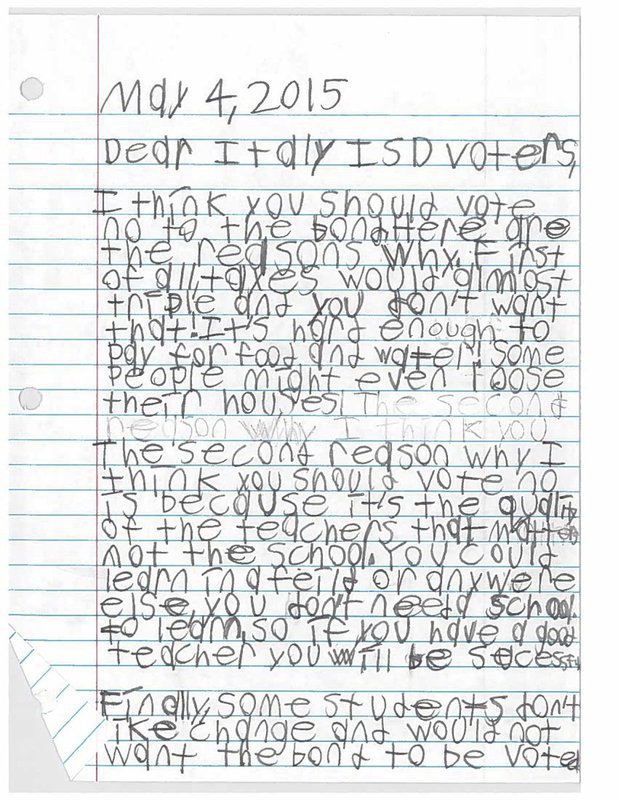 May 4, 2015
Dear Italy ISD voters,
I think you should vote
no to the bond. Here are
the reasons why. First
of all, taxes would almost
triple and you don't want
that! It's hard enough to
pay for food and water! Some
people might even loose
their houses! The second
reason why I think you
The second reason why I
think you should vote no
is because it's the quality
of the teachers that matter
not the school. You could
learn in a feild or anywere
else, you don't need school
to learn, so if you have a good
teacher you will be
Finally, some students don't
like change and would not
want the bond to be voted